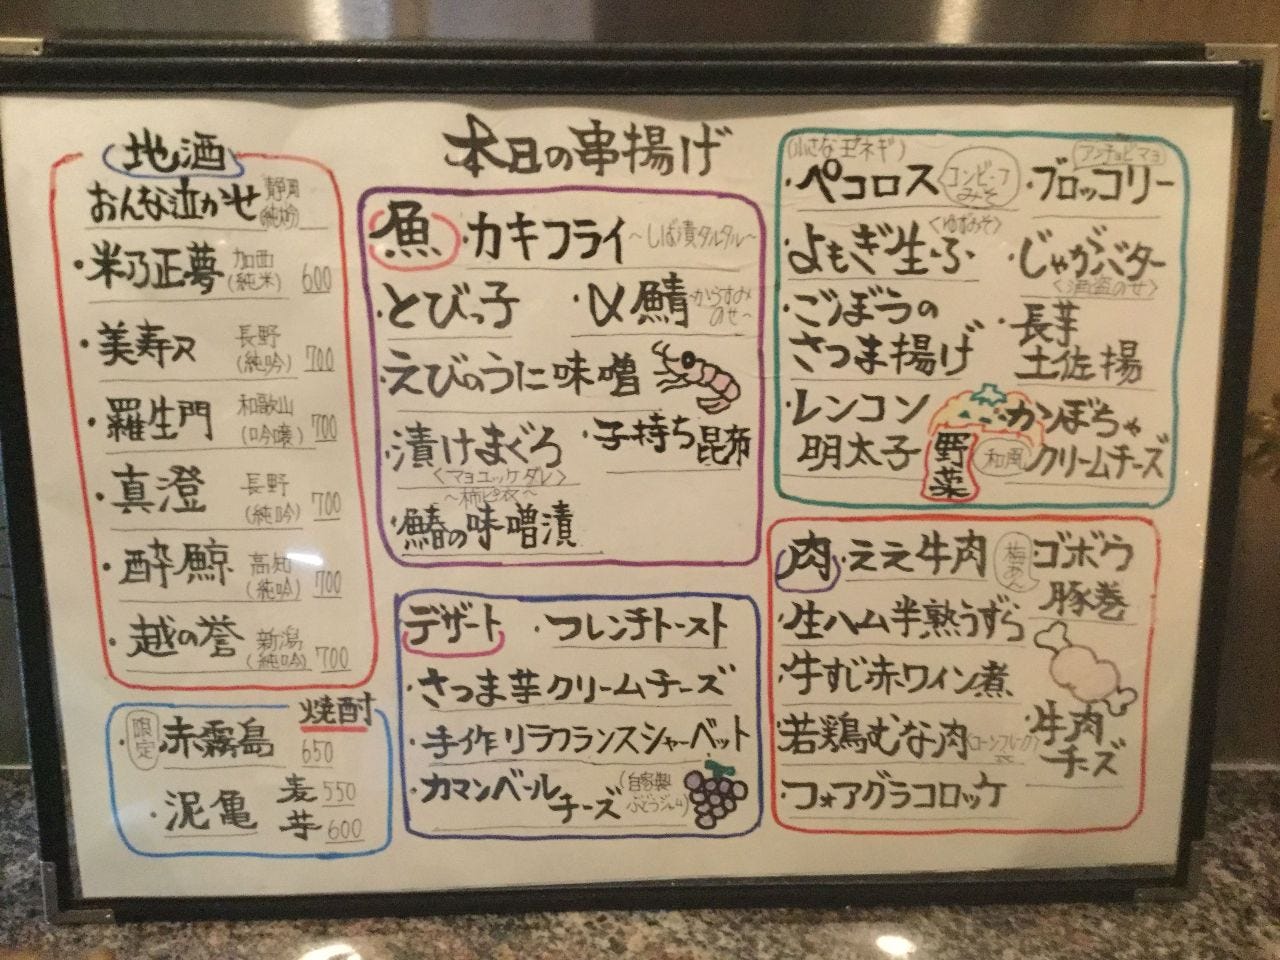 本日の串揚げ
地酒
おんな泣かせ 静岡(純吟)
・米乃正夢 加西(純米) 600
・美寿々 長野(純吟) 700
・羅生門 和歌山(吟醸) 700
・真澄 長野(純吟) 700
・酔鯨 高知(純吟) 700
・越の誉 新潟(純吟) 700
焼酎
・限定 赤霧島 650
・泥亀 麦 550
芋 600
魚
・カキフライ ~しば漬タルタル~
・とびっ子
・〆鯖 ~からすみのせ~
・えびのうに味噌
・漬けまぐろ
<マヨユッケダレ>
・子持ち昆布
~柿ピ衣~
・鰆の味噌漬
デザート
・フレンチトースト
・さつま芋クリームチーズ
・手作りラフランスシャーベット
・カマンベールチーズ (自家製ぶどうジャム)
(小さな玉ネギ)
・ペコロス <コンビーフみそ>
アンチョビマヨ
・ブロッコリー
<ゆずみそ>
・よもぎ生ふ
・じゃがバター
<酒盗のせ>
・ごぼうの
さつま揚げ
・長芋
土佐揚
・レンコン
明太子
野菜
・カンぼちゃ
和風 クリームチーズ
肉
・ええ牛肉
梅あん
・ゴボウ
豚巻
・生ハム半熟うずら
・牛すじ赤ワイン煮
・若鶏むな肉
・牛肉
チーズ
・フォアグラコロッケ